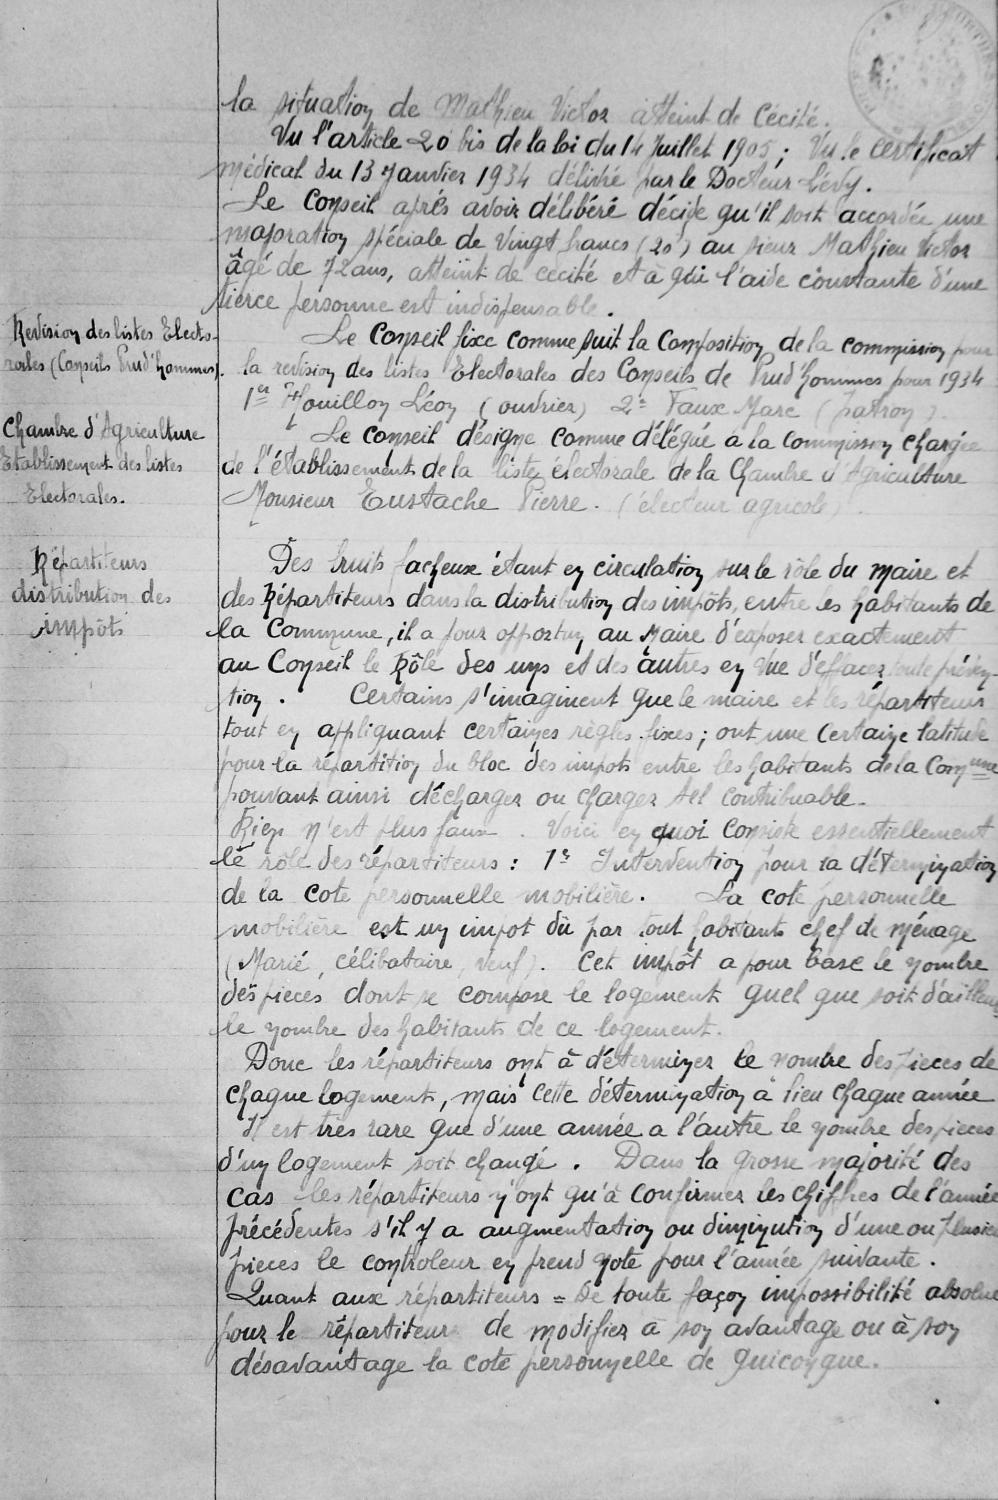 la situation de Mathieu Victor atteint de Cécité.
Vu l'article 20 bis de la loi du 14 Juillet 1905 ; Vu le certificat
médical du 13 Janvier 1934 délivré par le Docteur Lévy.
Le Conseil après avoir délibéré décide qu'il soit accordée une
majoration spéciale de Vingt francs (20f) au sieur Mathieu Victor
âgé de 72 ans, atteint de cécité et à qui l'aide constante d'une
tierce personne est indispensable.
Revision des listes Electo-
rales (Conseils Prud'hommes).
Le Conseil fixe comme suit la Composition de la commission pour
la revision des listes Electorales des Conseils de Prud'hommes pour 1934
1er Houillon Léon (ouvrier) 2e Faux Marc (patron).
Chambre d'Agriculture
Etablissement des listes
Electorales.
Le conseil désigne comme délégué à la Commission chargée
de l'établissement de la liste électorale de la Chambre d'Agriculture
Monsieur Eustache Pierre. (électeur agricole).
Répartiteurs
distribution des
impôts
Des bruits facheux étant en circulation sur le rôle du maire et
des Répartiteurs dans la distribution des impôts, entre les habitants de
la Commune, il a paru opportun au Maire d'exposer exactement
au Conseil le Rôle des uns et des autres en vue d'effacer toute préven-
tion. Certains s'imaginent que le maire et les répartiteurs
tout en appliquant certaines règles fixes ; ont une Certaine latitude
pour la répartition du bloc des impots entre les habitants de la Commune
pouvant ainsi décharger ou charger tel contribuable.
Rien n'est plus faux. Voici en quoi Consiste essentiellement
le rôle des répartiteurs : 1° Intervention pour la détermination
de la cote personnelle mobilière. La cote personnelle
mobilière est un impot dû par tout habitants chef de ménage
(Marié, célibataire, veuf). Cet impôt a pour base le nombre
des pieces dont se compose le logement quel que soit d'ailleurs
le nombre des habitants de ce logement.
Donc les répartiteurs ont à déterminer le nombre des pieces de
chaque logement, mais cette détermination a lieu chaque année
Il est très rare que d'une année a l'autre le nombre des pieces
d'un logement soit changé. Dans la grosse majorité des
cas les répartiteurs n'ont qu'à confirmer les chiffres de l'année
précédentes s'il y a augmentation ou diminution d'une ou plusieurs
pieces le controleur en prend note pour l'année suivante.
Quant aux répartiteurs = De toute façon impossibilité absolue
pour le répartiteur de modifier à son avantage ou à son
désavantage la cote personnelle de quiconque.